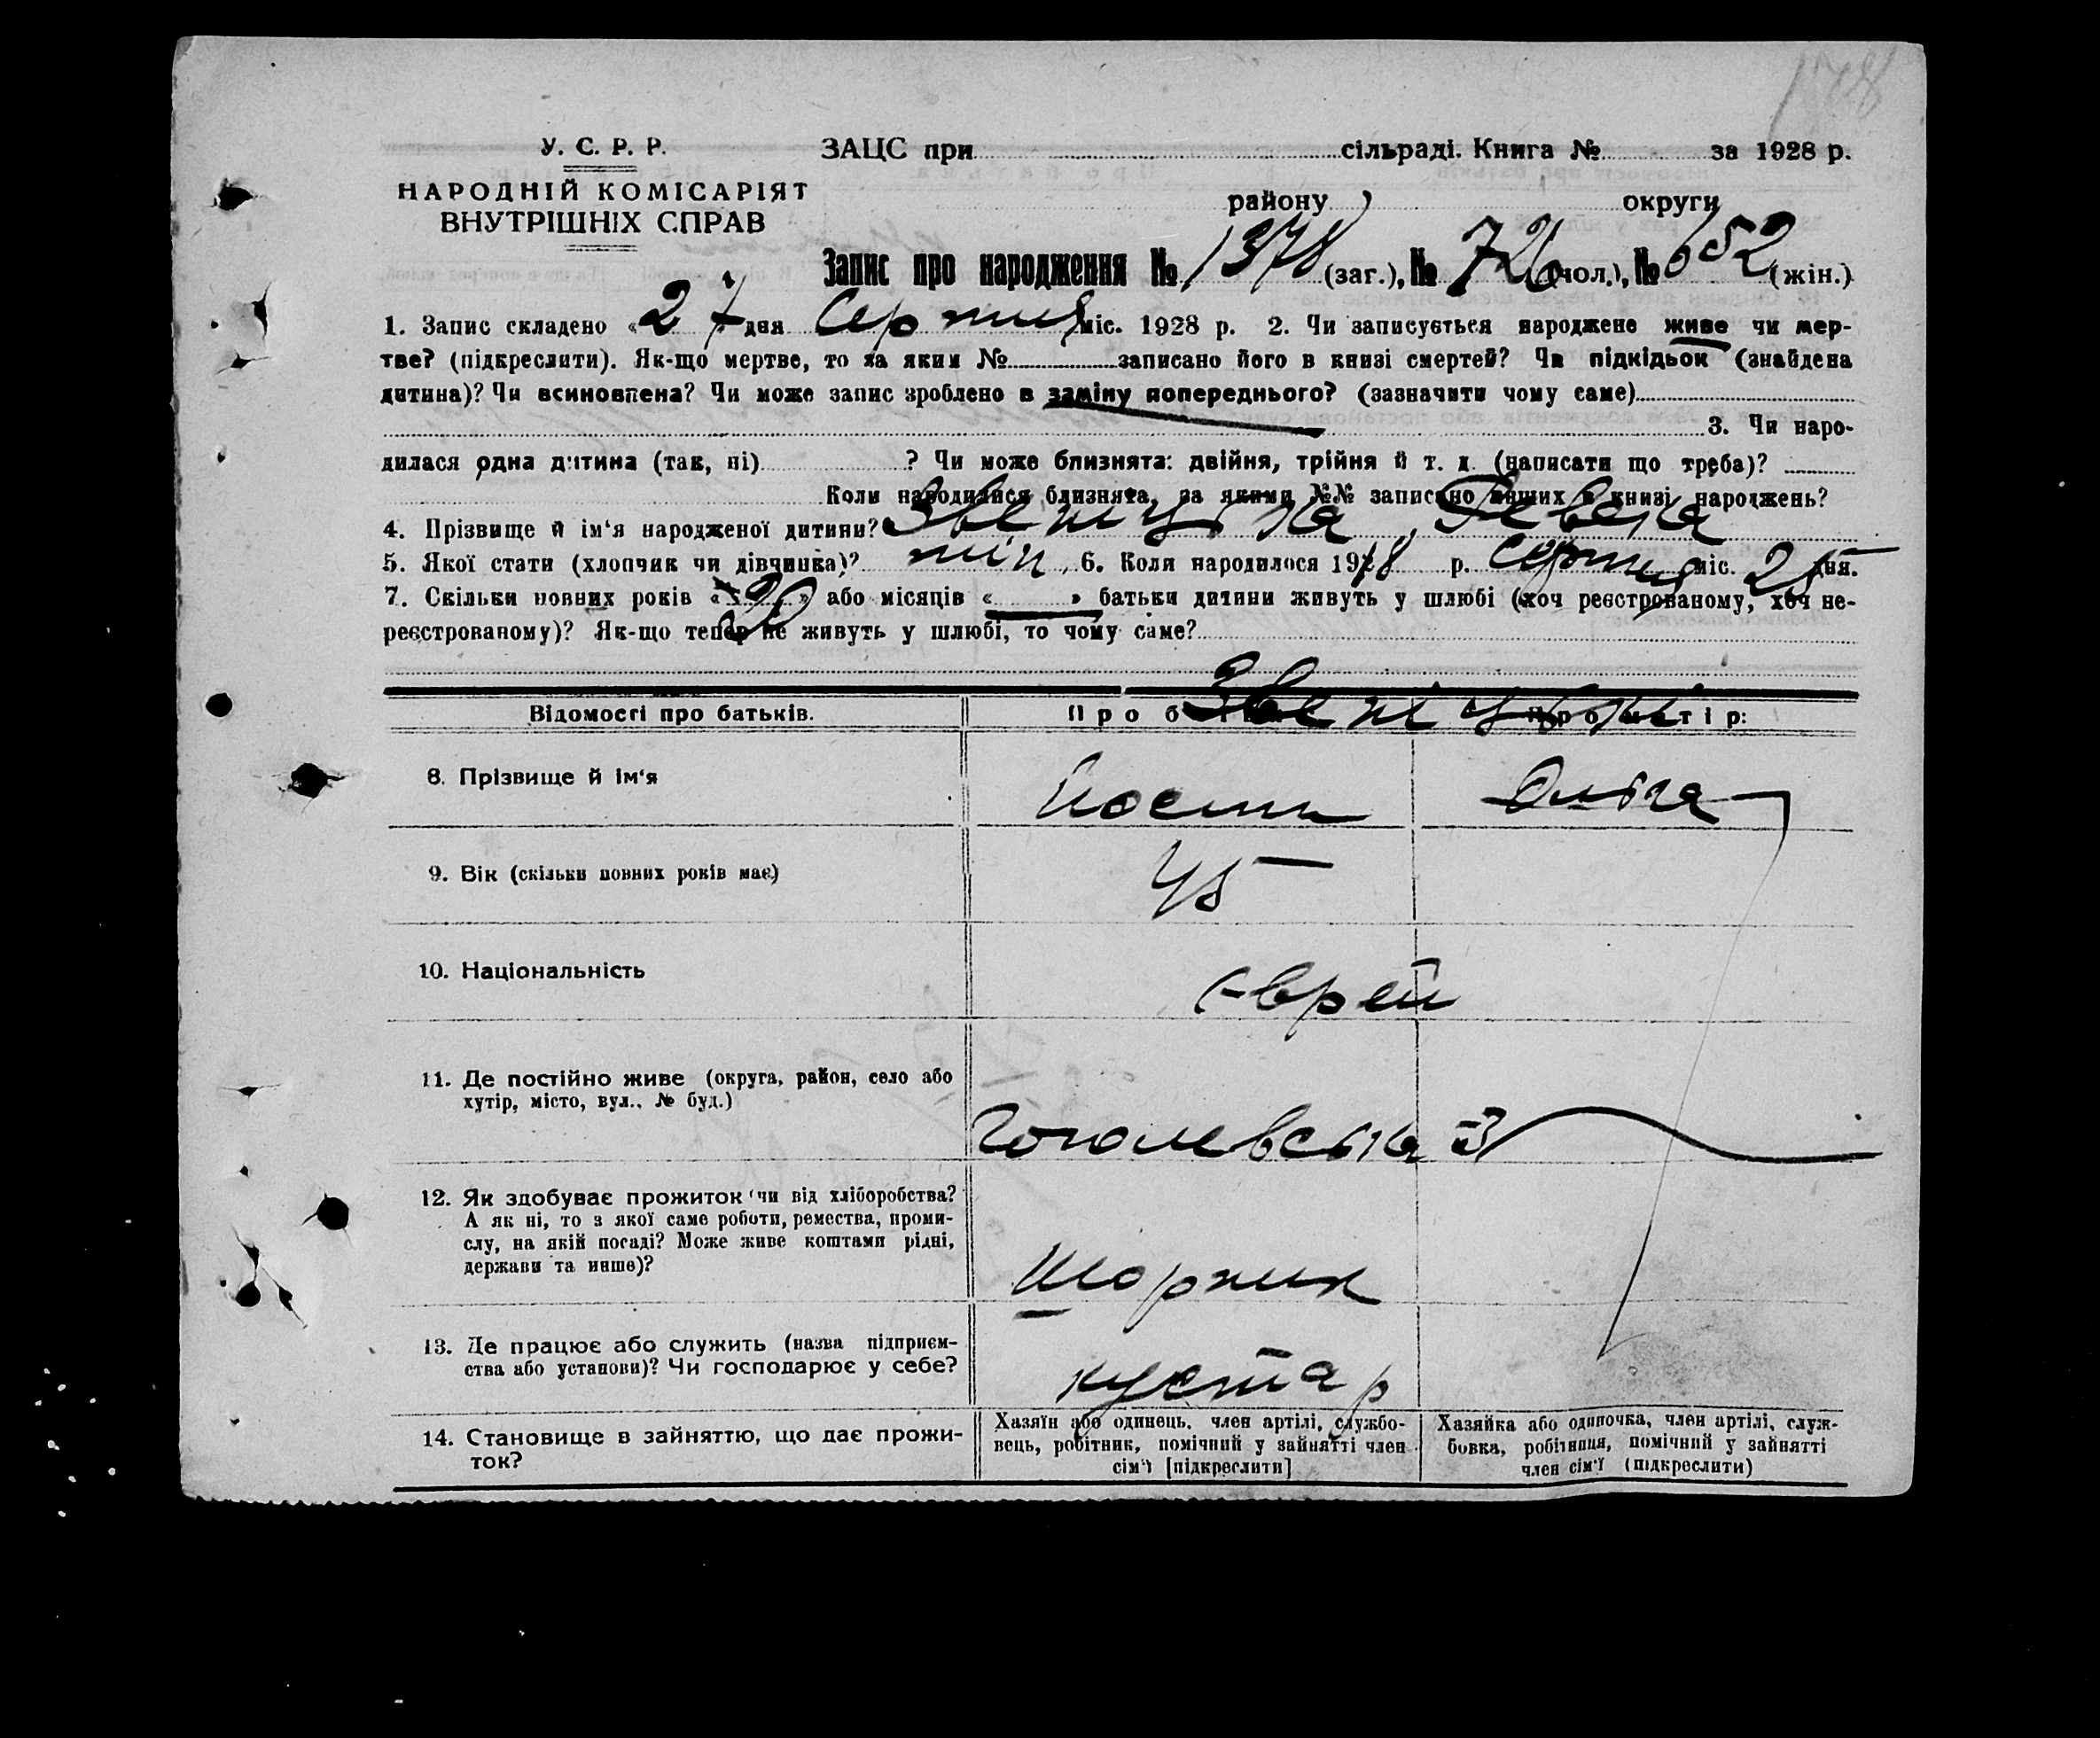 У. С. Р. Р.
НАРОДНІЙ КОМІСАРІЯТ
ВНУТРІШНІХ СПРАВ
ЗАЦС при сільраді. Книга № за 1928 р.
району округи
Запис про народження № 1378 (заг.), № 726 (чол.), № 652 (жін.)
1. Запис складено « 27 » дня Серпня міс. 1928 р. 2. Чи записується народжене живе чи мер-
тве? (підкреслити). Як-що мертве, то за яким № записано його в книзі смертей? Чи підкідьок (знайдена
дитина)? Чи всиновлена? Чи може запис зроблено в заміну попереднього? (зазначити чому саме)
3. Чи наро-
дилася одна дитина (так, ні) ? Чи може близнята: двійня, трійня й т. д. (написати що треба)?
Коли народилися близнята, за якими №№ записано инших в книзі народжень?
4. Прізвище й ім'я народженої дитини? Звеницька
5. Якої статі (хлопчик чи дівчинка)? 6. Коли народилося 1928 р. Серпня міс. 25 дня.
7. Скільки повних років « 20 » або місяців « » батьки дитини живуть у шлюбі (хоч реєстрованому, хоч не-
реєстрованому)? Як-що тепер не живуть у шлюбі, то чому саме?
Відомості про батьків. Про батька: Про матір:
8. Прізвище й ім'я Ольга
9. Вік (скільки повних років має) 45
10. Національність Єврей
11. Де постійно живе (округа, район, село або
хутір, місто, вул., № буд.)
Гоголевська 3
12. Як здобуває прожиток (чи від хліборобства?
А як ні, то з якої саме роботи, ремества, проми-
слу, на якій посаді? Може живе коштами рідні,
держави та инше)?
Шорник
13. Де працює або служить (назва підприєм-
ства або установи)? Чи господарює у себе?
кустар
14. Становище в зайняттю, що дає прожи-
ток?
Хазяїн або одинець, член артілі, службо-
вець, робітник, помічний у зайнятті член
сім'ї [підкреслити]
Хазяйка або одиночка, член артілі, служ-
бовка, робітниця, помічний у зайнятті
член сім'ї (підкреслити)